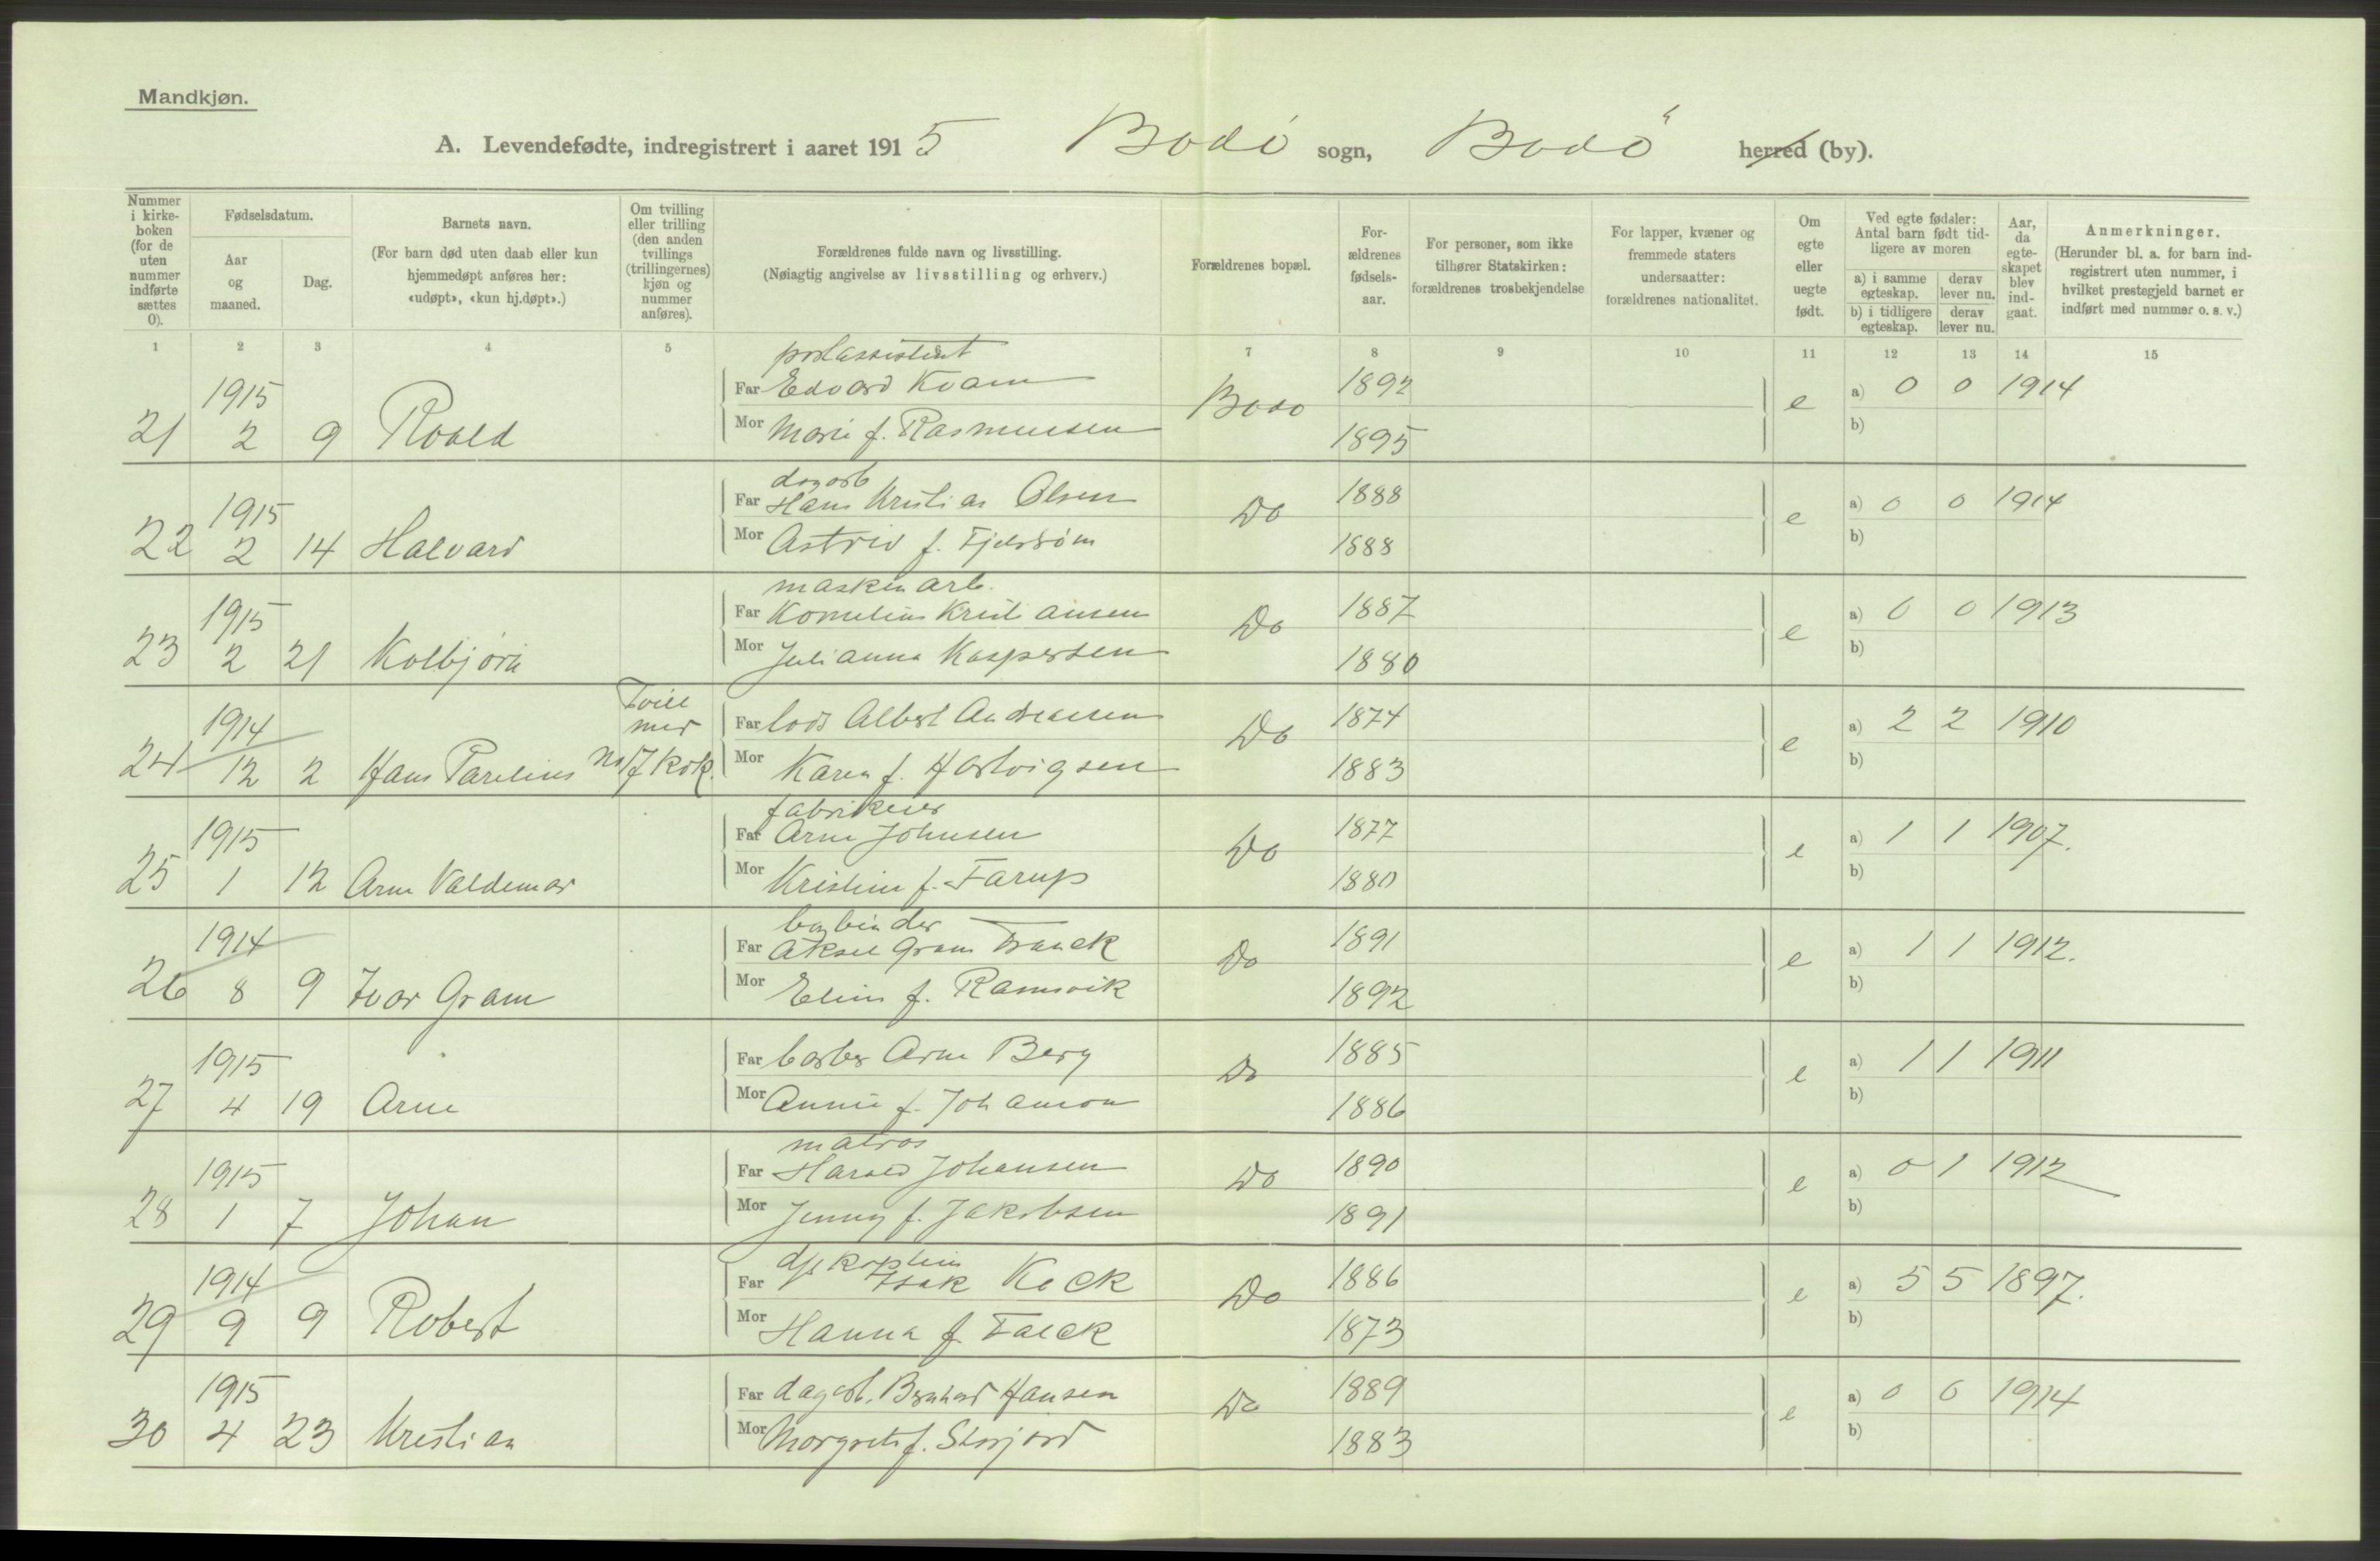 Mandkjøn.
A. Levendefødte, indregistrert i aaret 1915 Bodø sogn, Bodø herred (by).
Nummer i kirke-boken (for de uten nummer indførte sættes 0).
Fødselsdatum.
Aar og maaned.
Dag.
Barnets navn.
(For barn død uten daab eller kun hjemmedøpt anføres her: «udøpt», «kun hj.døpt».)
Om tvilling eller trilling (den anden tvillings (trillingernes) kjøn og nummer anføres).
Forældrenes fulde navn og livsstilling.
(Nøiagtig angivelse av livsstilling og erhverv.)
Forældrenes bopæl.
For-ældrenes fødsels-aar.
For personer, som ikke tilhører Statskirken: forældrenes trosbekjendelse
For lapper, kvæner og fremmede staters undersaatter: forældrenes nationalitet.
Om egte eller uegte født.
Ved egte fødsler: Antal barn født tid-ligere av moren
a) i samme egteskap.
derav lever nu.
b) i tidligere egteskap.
derav lever nu.
Aar, da egte-skapet blev ind-gaat.
Anmerkninger.
(Herunder bl. a. for barn ind-registrert uten nummer, i hvilket prestegjeld barnet er indført med nummer o. s. v.)
1 2 3 4 5 6 7 8 9 10 11 12 13 14 15
postassistent
1915 Far Edvard Kvam 1892 a) 0 0 1914
21 2 9 Roald Mor Marie f. Rasmussen Bodø 1895 e b)
dagarb
1915 Far Hans Kristian Olsen 1888 a) 0 0 1914
22 2 14 Halvard Mor Astrid f. Fjelstrøm Do 1888 e b)
maskinarb.
1915 Far Kornelius Kristiansen 1887 a) 0 0 1913
23 2 21 Kolbjørn Mor Julianna Kaspersen Do 1880 e b)
Tvill
1914 med Far lods Albert Andreassen 1874 a) 2 2 1910
24 12 2 Hans Parelius no 7 kvk. Mor Karen f. Hartvigsen Do 1883 e b)
fabrikeier
1915 Far Arne Johnsen 1877 a) 1 1 1907.
25 1 12 Arne Valdemar Mor Kristine f. Farup Do 1880 e b)
bogbinder
1914 Far Aksel Gram Franck 1891 a) 1 1 1912.
26 8 9 Ivar Gram Mor Eline f. Ramsvik Do 1892 e b)
1915 Far barber Arne Berg 1885 a) 1 1 1911
27 4 19 Arne Mor Annie f. Johanson Do 1886 e b)
matros
1915 Far Harald Johansen 1890 a) 0 1 1912
28 1 7 Johan Mor Jenny f. Jakobsen Do 1891 e b)
1914 Far Isak Kock 1886 a) 5 5 1897.
29 9 9 Robert Mor Hanna f. Falck Do 1873 e b)
1915 Far dagarb. Bernhard Hansen 1889 a) 0 0 1914
30 4 23 Kristian Mor Margrete f. Storjord Do 1883 e b)